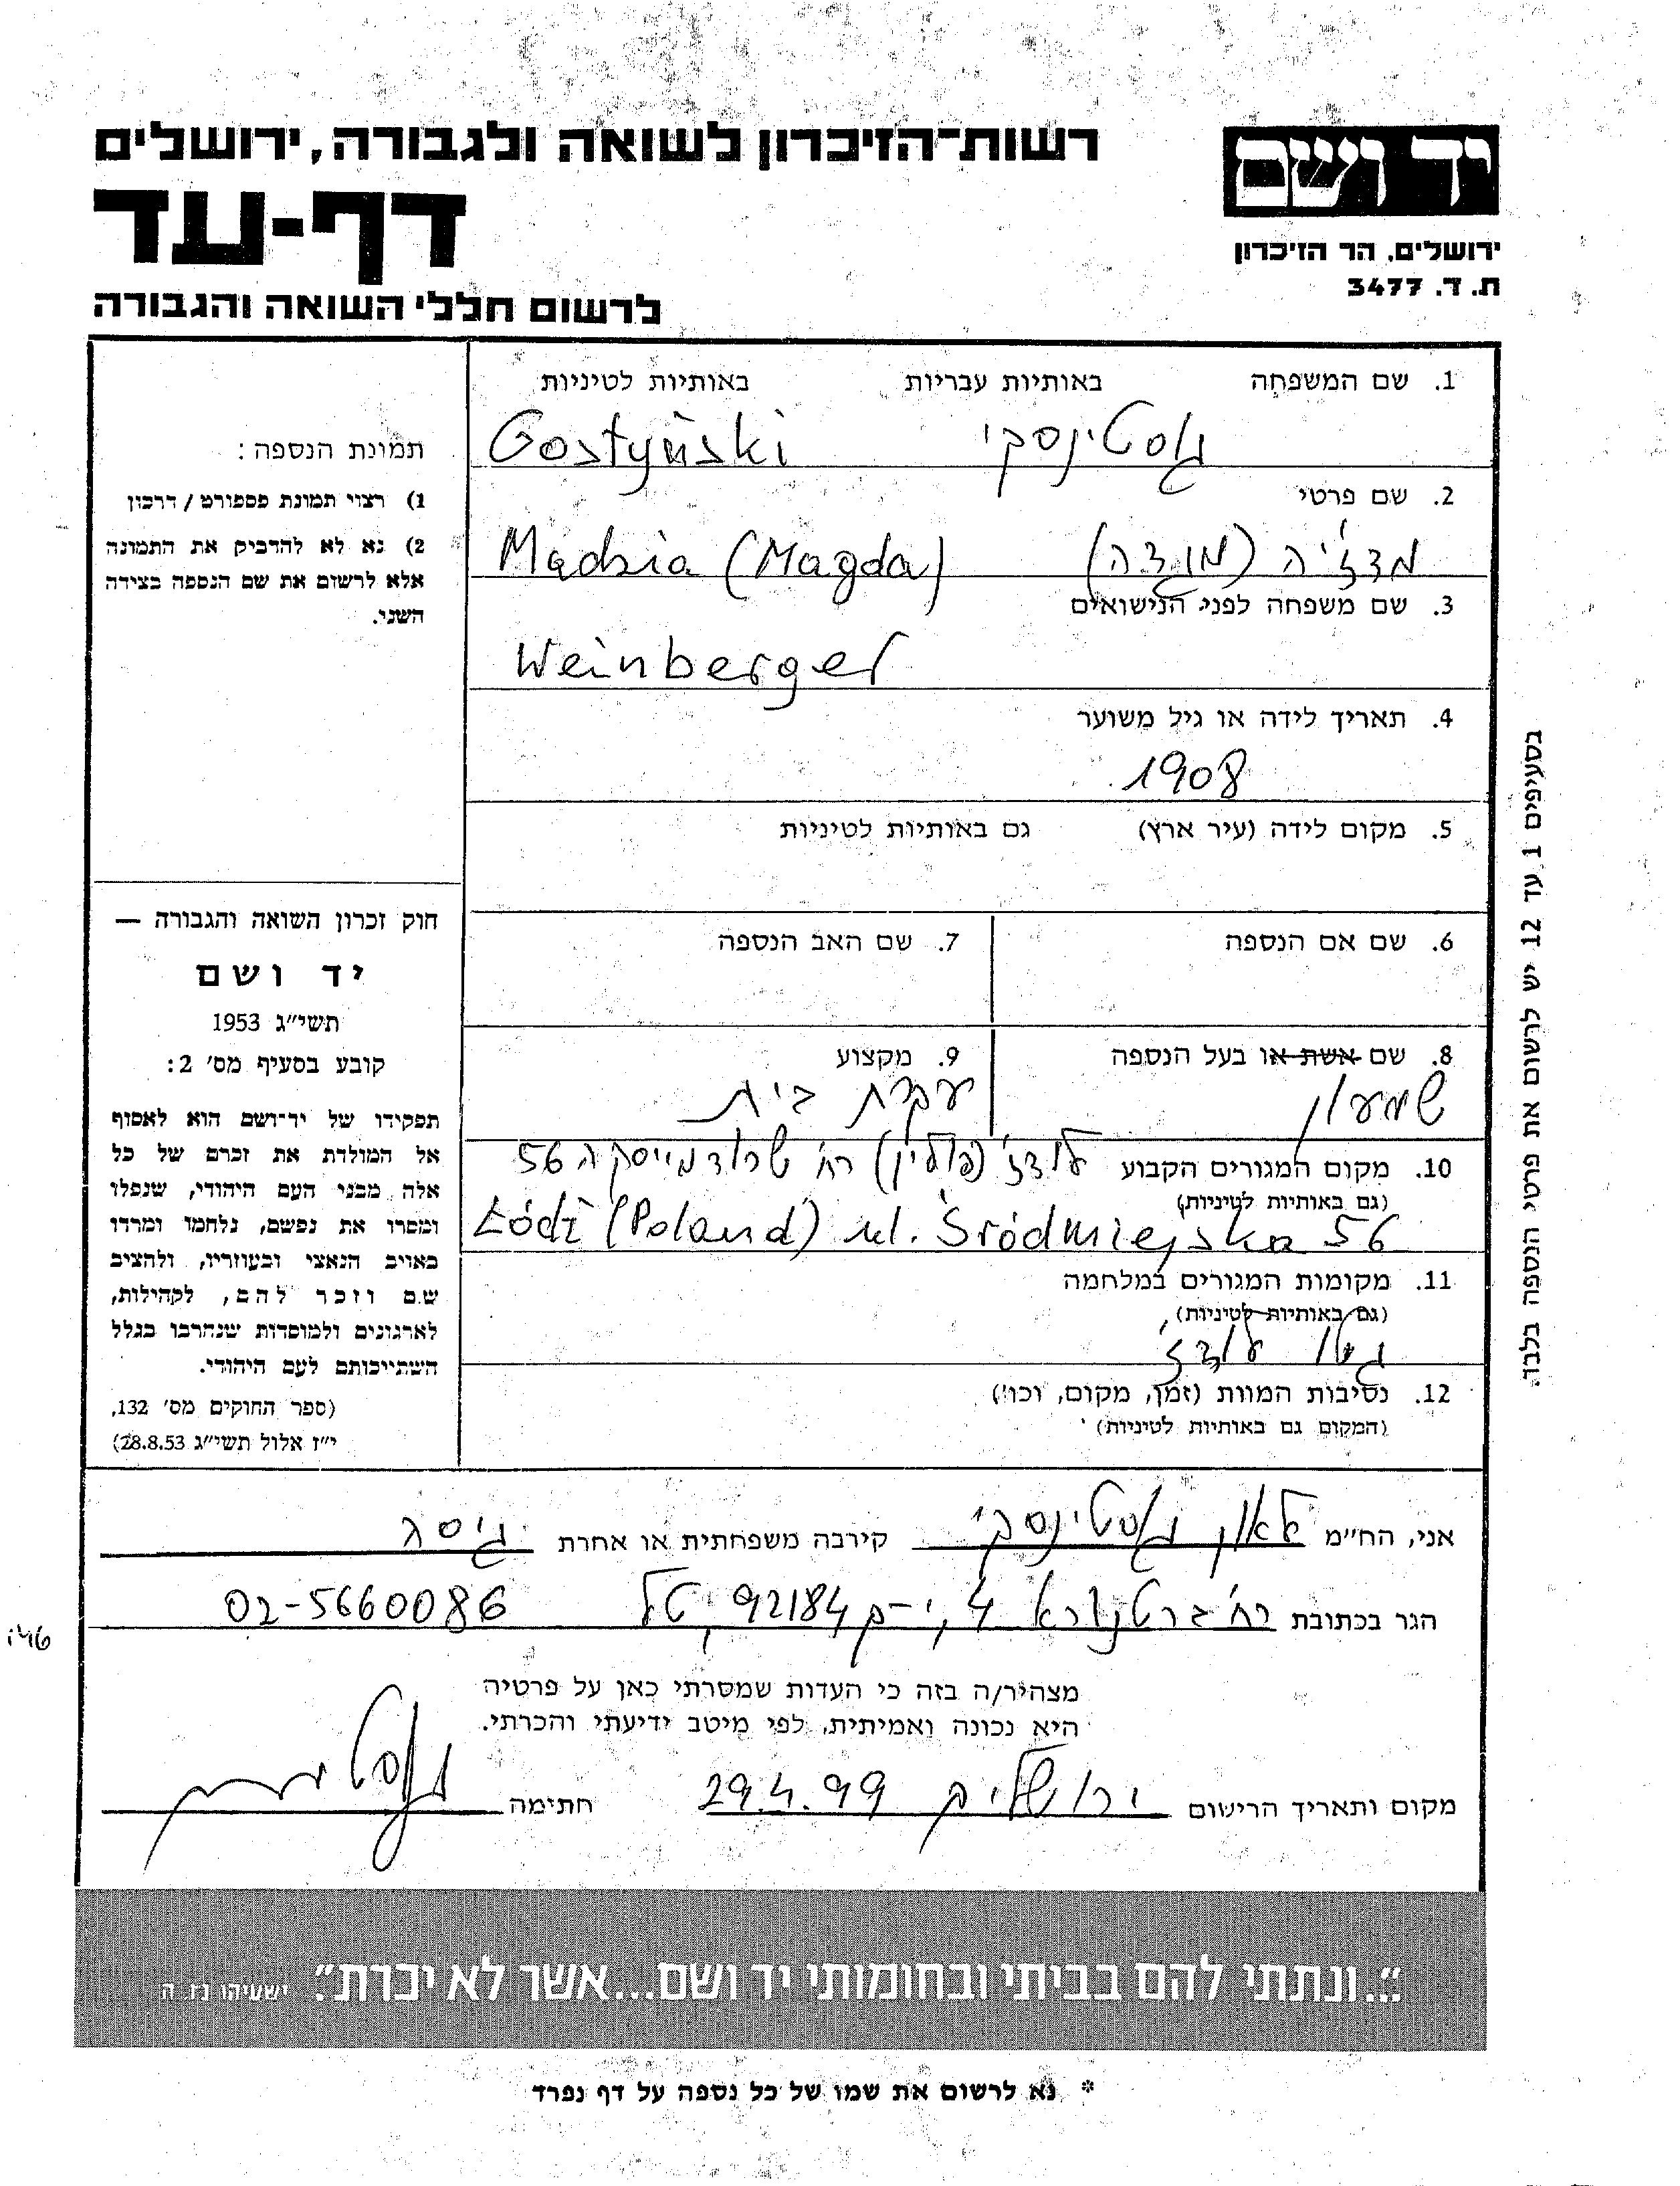 רשות-הזיכרון לשואה ולגבורה, ירושלים
דף-עד
לרשום חללי השואה והגבורה
יד ושם
ירושלים, הר הזיכרון
ת. ד. 3477
1. שם המשפחה באותיות עבריות באותיות לטיניות
גוסטינסקי Gostyński
2. שם פרטי
מדז'יה (מגדה) Madzia (Magda)
3. שם משפחה לפני הנישואים
Weinberger
4. תאריך לידה או גיל משוער
1908
5. מקום לידה (עיר ארץ) גם באותיות לטיניות
6. שם אם הנספה
7. שם האב הנספה
8. שם אשת או בעל הנספה
שמעון
9. מקצוע
עקרת בית
10. מקום המגורים הקבוע לודז' (פולין) רח' שרודמייסקה 56
(גם באותיות לטיניות)
Łódź (Poland) ul. Śródmiejska 56
11. מקומות המגורים במלחמה
(גם באותיות לטיניות)
גטו לודז'
12. נסיבות המוות (זמן, מקום, וכו')
(המקום גם באותיות לטיניות)
תמונת הנספה:
1) רצוי תמונת פספורט / דרכון
2) נא לא להדביק את התמונה
אלא לרשום את שם הנספה בצידה
השני.
חוק זכרון השואה והגבורה —
יד ושם
תשי״ג 1953
קובע בסעיף מס' 2:
תפקידו של יד-ושם הוא לאסוף
אל המולדת את זכרם של כל
אלה מבני העם היהודי, שנפלו
ומסרו את נפשם, נלחמו ומרדו
באויב הנאצי ובעוזריו, ולהציב
שם וזכר להם, לקהילות,
לארגונים ולמוסדות שנחרבו בגלל
השתייכותם לעם היהודי.
(ספר החוקים מס' 132,
י״ז אלול תשי״ג 28.8.53)
בסעיפים 1 עד 12 יש לרשום את פרטי הנספה בלבד.
אני, הח״מ לאון גוסטינסקי קירבה משפחתית או אחרת גיסה
הגר בכתובת רח' ברטנורא 4, י-ם 92184, טל 02-5660086
מצהיר/ה בזה כי העדות שמסרתי כאן על פרטיה
היא נכונה ואמיתית, לפי מיטב ידיעתי והכרתי.
מקום ותאריך הרישום ירושלים 29.4.99 חתימה
״...ונתתי להם בביתי ובחומותי יד ושם...אשר לא יכרת״. ישעיהו נו, ה
* נא לרשום את שמו של כל נספה על דף נפרד